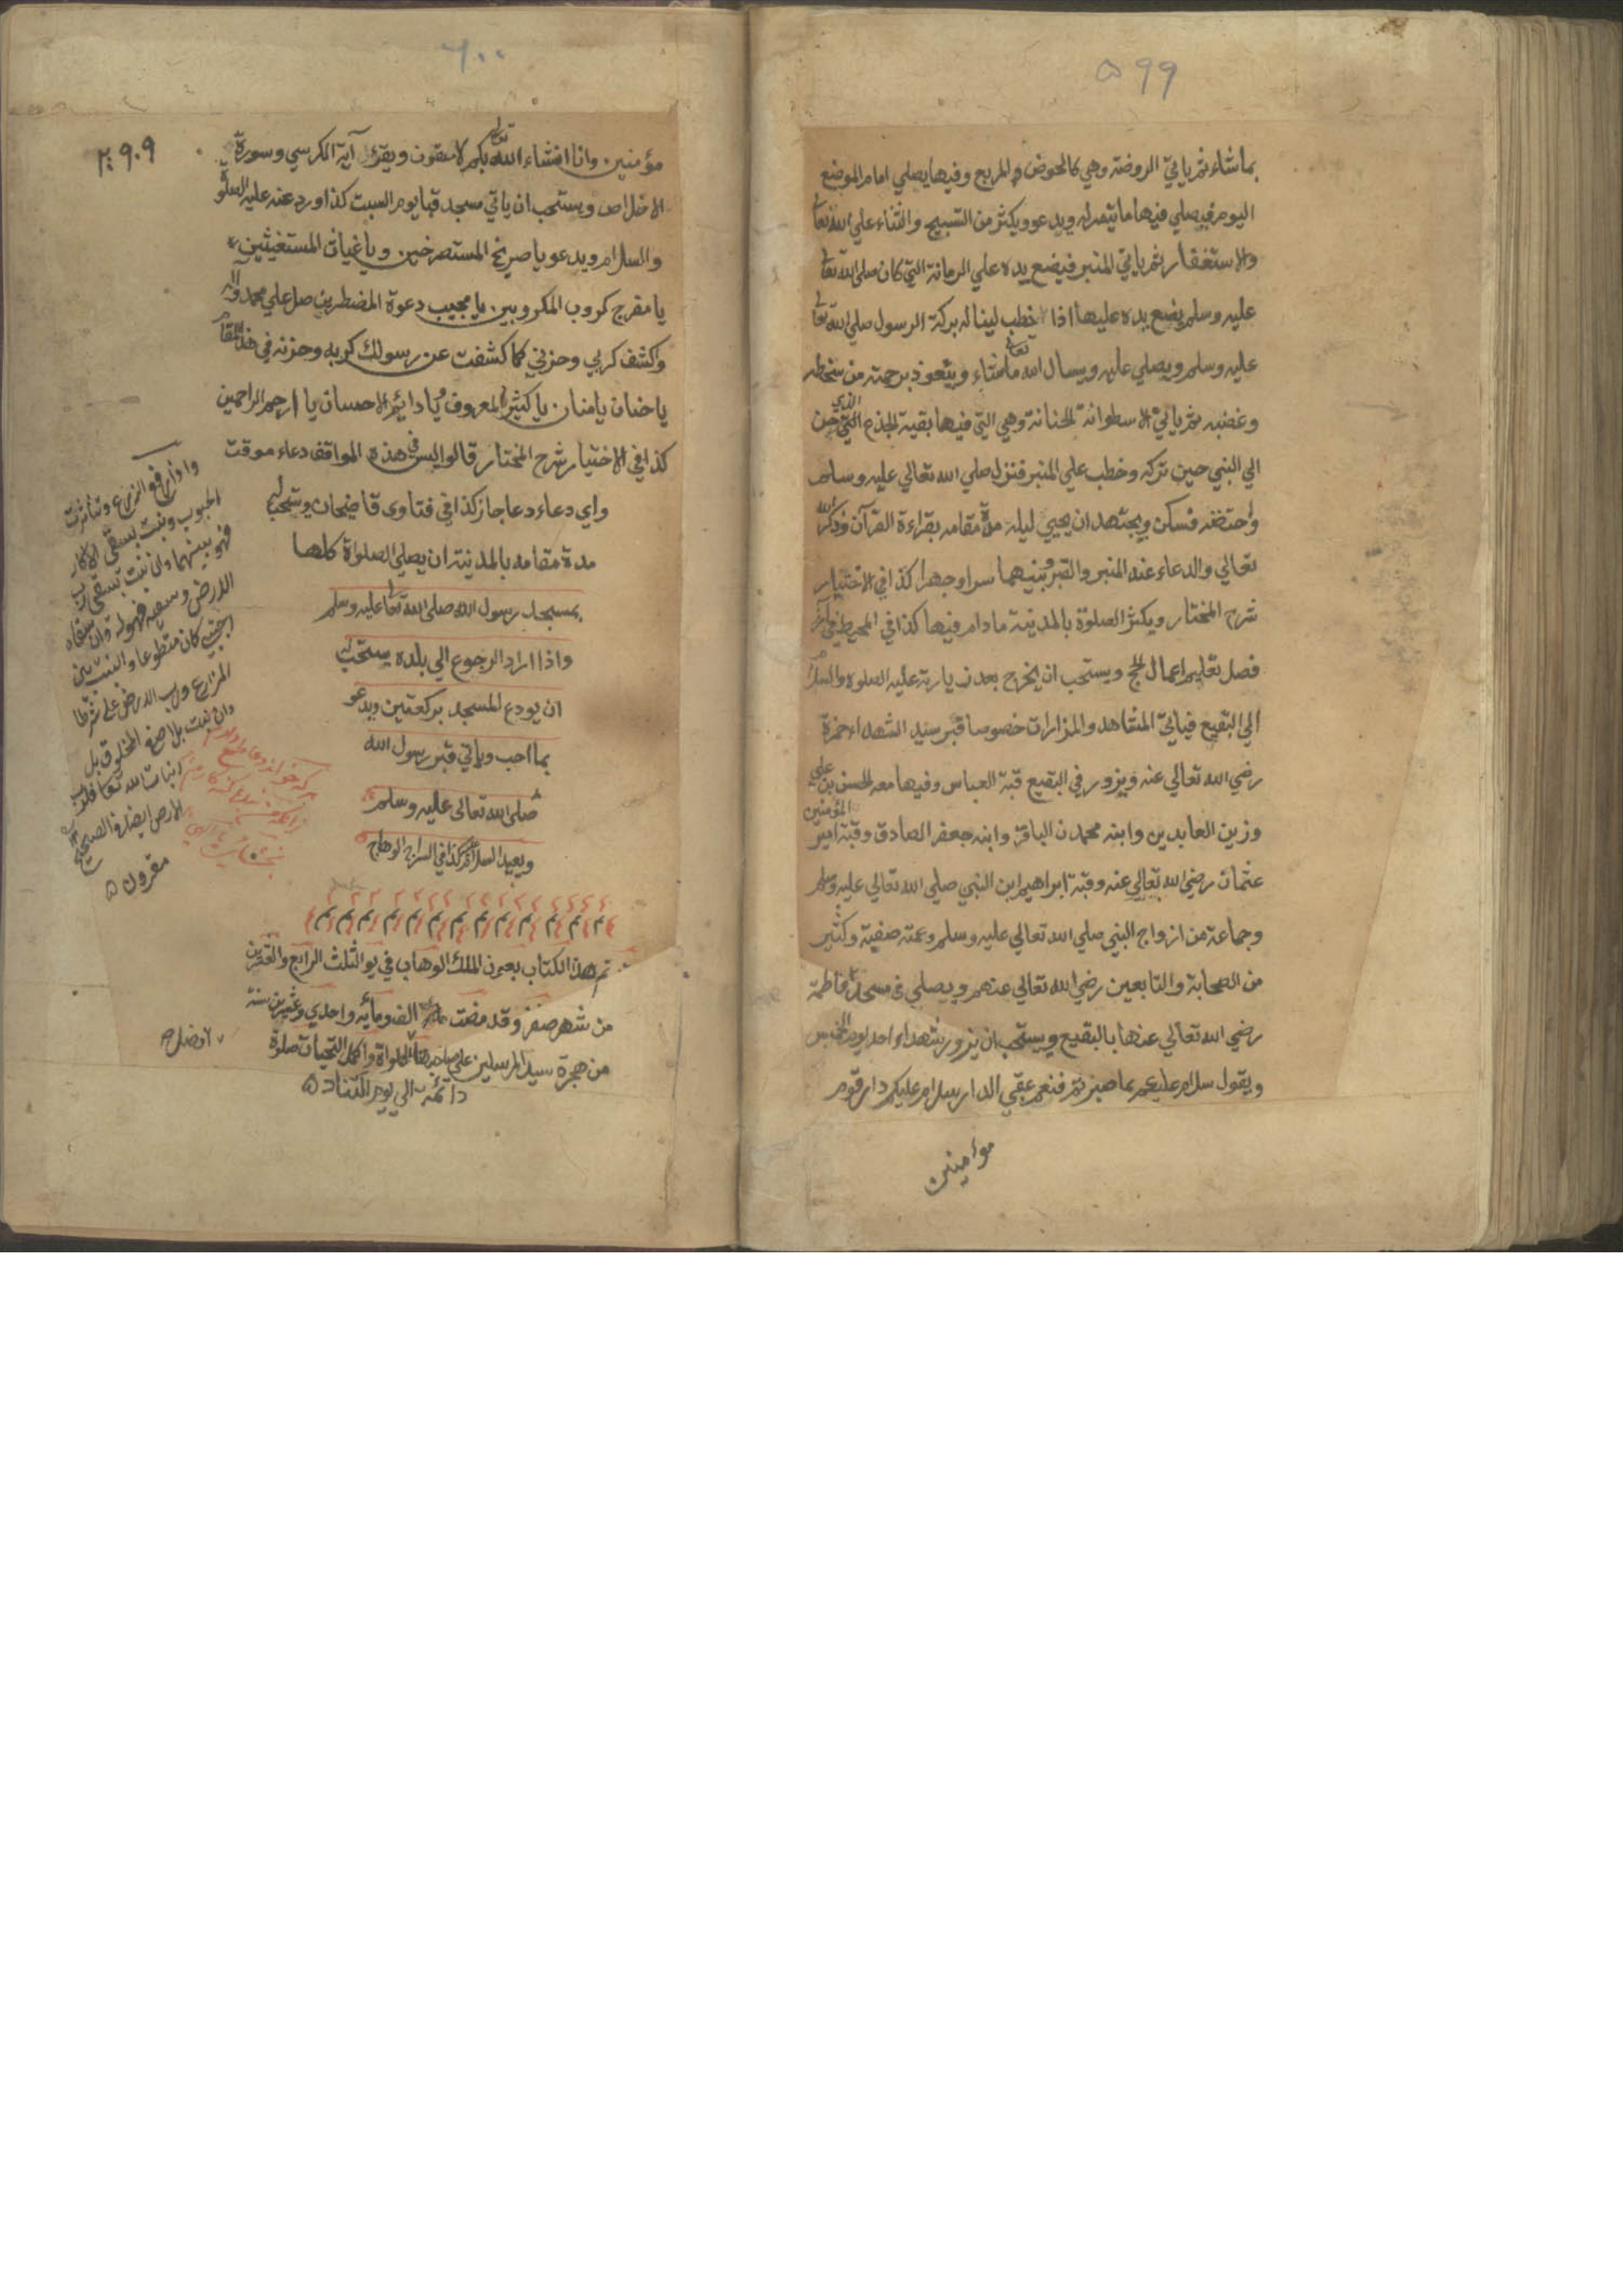 ۵۹۹
بماشاء ثم ياتي الروضة وهي كالحوض المربع وفيها يصلي امام الموضع
اليوم فيصلي فيها ما تيسر له ويدعو ويكثر من التسبيح والثناء علي الله تعا
والاستغفار ثم ياتي المنبر فيضع يده علي الرمانة التي كان صلى الله تعا
عليه وسلم يضع يده عليها اذا خطب لينا له بركة الرسول صلي الله تعا
عليه وسلم ويصلي عليه ويسال الله تعالى ماشاء ويتعوذ برحمته من سخطه
وغضبه ثم ياتي الاسطوانة الحنانة وهي التي فيها بقية الجذع الذي حن
الي النبي حين تركه وخطب علي المنبر فنزل صلي الله تعالي عليه وسلم
واحتضنه فسكن ويجتهد ان يحيي ليله مدة مقامه بقراءة القرآن وذكر الله
تعالي والدعاء عند المنبر والقبر وبينهما سرا وجهرا كذا في الاختيار
شرح المختار ويكثر الصلوة بالمدينة مادام فيها كذا في المحيط في آخر
فصل تعليم اعمال الحج ويستحب ان يخرج بعد زيارته عليه الصلوة والسلام
الي البقيع فياتي المشاهد والمزارات خصوصا قبر سيد الشهداء حمزة
رضي الله تعالي عنه ويزور في البقيع قبة العباس وفيها معه الحسن بن علي
وزين العابدين وابنه محمد ن الباقر وابنه جعفر الصادق وقبة امير المؤمنين
عثمان رضي الله تعالي عنه وقبة ابراهيم ابن النبي صلي الله تعالي عليه وسلم
وجماعة من ازواج النبي صلي الله تعالي عليه وسلم وعمته صفية وكثير
من الصحابة والتابعين رضي الله تعالي عنهم ويصلي في مسجد فاطمة
رضي الله تعالي عنها بالبقيع ويستحب ان يزور شهداء احد يوم الخميس
ويقول سلام عليكم بما صبرتم فنعم عقبي الدار سلام عليكم دار قوم
مؤمنين
۶۰۰
۲۹۰۹
مؤمنين وانا انشاء الله تعالى بكم لاحقون ويقرأ آية الكرسي وسورة
الاخلاص ويستحب ان ياتي مسجد قبا يوم السبت كذا ورد عنه عليه الصلوة
والسلام ويدعو يا صريخ المستصرخين ويا غياث المستغيثين
يا مفرج كروب المكروبين يا مجيب دعوة المضطرين صل علي محمد وآله
واكشف كربي وحزني كما كشفت عن رسولك كربه وحزنه في هذا المقام
يا حنان يا منان يا كثير المعروف ويا دائم الاحسان يا ارحم الراحمين
كذا في الاختيار شرح المختار قالوا ليس في هذه المواقف دعاء موقت
واي دعاء دعا جاز كذا في فتاوى قاضيخان ويستحب له
مدة مقامه بالمدينة ان يصلي الصلواة كلها
بمسجد رسول الله صلى الله تعا عليه وسلم
واذا اراد الرجوع الي بلده يستحب له
ان يودع المسجد بركعتين ويدعو
بما احب وياتي قبر رسول الله
صلى الله تعالى عليه وسلم
ويعيد السلام كذا في السراج الوهاج
تم هذا الكتاب بعون الملك الوهاب في يوم الثلث الرابع والعشرين
من شهر صفر وقد مضت الف ومأيه واحدي وعشرين سنة
من هجرة سيد المرسلين علي صاحبها الصلواة واكمل التحيات صلوة
دائمة الى يوم التناد
واذا رفع الزرع وتناثرت
الحبوب ونبت بسقي الاكار
فهو بينهما وان نبت بسقي رب
الارض وسقيه فهو له وان سقاه
اجنبي كان متطوعا والنبت بين
المزارع ورب الارض علي شرطا
وان نبت بلا صنع المخلوق بل